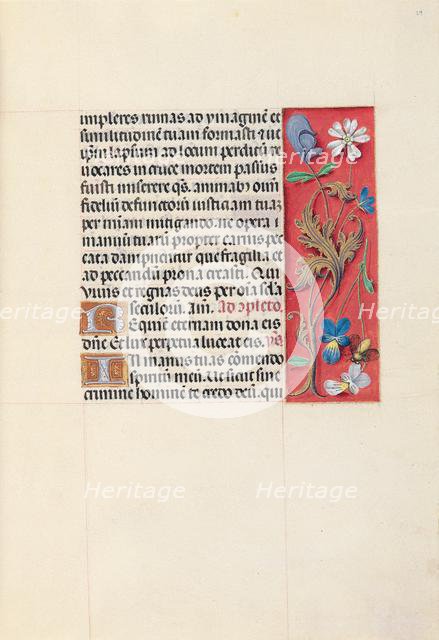 impleres ruinas ad ymaginē et
similitudinē tuam formasti & ue
lapsum ad locum perditū re
uocares in cruce mortem passus
fuisti miserere q̄s animab' oīm
fideliū defunctorū iusticiam tuā
per miam mitigando. ne opera
manuū tuarū propter carnis pec
cata dampnentur que fragilia et
ad peccandū prona creasti. Qui
viuis et regnas deus per oīa scla
seculorū. am̄. Ad 9pletō.
Requiē eternam dona eis
dn̄e Et lux perpetua luceat eis. ps̄.
In manus tuas cōmendo
spiritum meū. & licet sine
crimine homine te credo deū. qui
Heritage Heritage Heritage
Heritage Heritage